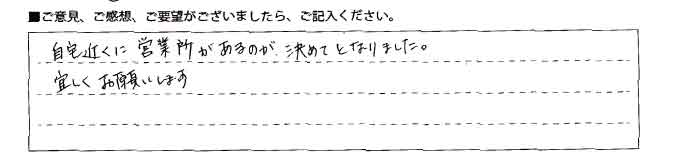 ■ご意見、ご感想、ご要望がございましたら、ご記入ください。
自宅近くに営業所があるのが決めてとなりました。
宜しくお願いします